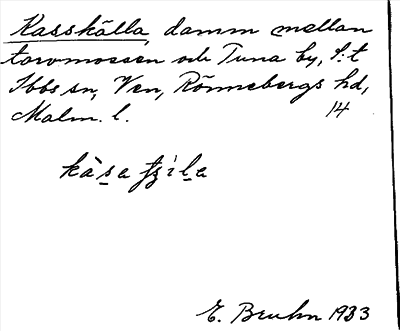 Kasskälla, damm mellan
torvmossen och Tuna by, S:t
Ibbs sn, Ven, Rönnebergs hd,
Malm. l. 14
E. Bruhn 1933